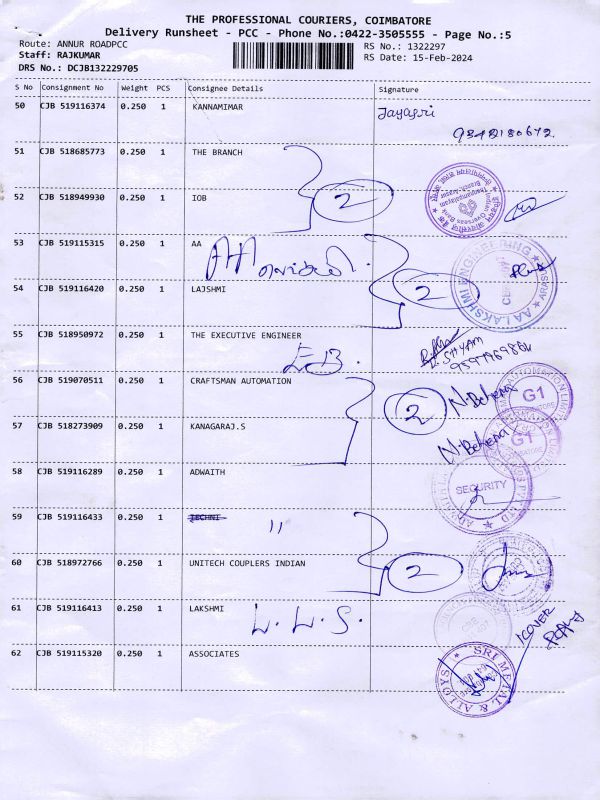 THE PROFESSIONAL COURIERS, COIMBATORE
Delivery Runsheet - PCC - Phone No.:0422-3505555 - Page No.:5
Route: ANNUR ROADPCC
RS No.: 1322297
Staff: RAJKUMAR
RS Date: 15-Feb-2024
DRS No.: DCJB132229705
S No Consignment No Weight PCS Consignee Details Signature
50 CJB 519116374 0.250 1 KANNAMIMAR
Jayasri
9842180672
51 CJB 518685773 0.250 1 THE BRANCH
2
52 CJB 518949930 0.250 1 IOB
Indian Overseas Bank
53 CJB 519115315 0.250 1 AA
AA
AA LAKSHMI ENGINEERING
54 CJB 519116420 0.250 1 LAJSHMI
2
55 CJB 518950972 0.250 1 THE EXECUTIVE ENGINEER
EB.
SHYAM
56 CJB 519070511 0.250 1 CRAFTSMAN AUTOMATION
2
G1
57 CJB 518273909 0.250 1 KANAGARAJ.S
G1
58 CJB 519116289 0.250 1 ADWAITH
SECURITY
59 CJB 519116433 0.250 1 TECHNI
"
60 CJB 518972766 0.250 1 UNITECH COUPLERS INDIAN
2
61 CJB 519116413 0.250 1 LAKSHMI
L.L.S.
1COVER
62 CJB 519115320 0.250 1 ASSOCIATES
SRI METAL & ALLOYS